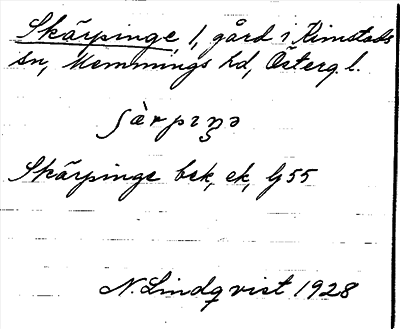 Skärpinge, 1, gård i Kimstads
sn, Memmings hd, Österg. l.
ʃàrpıŋə
Skärpinge bek, ek, G 55
N. Lindqvist 1928